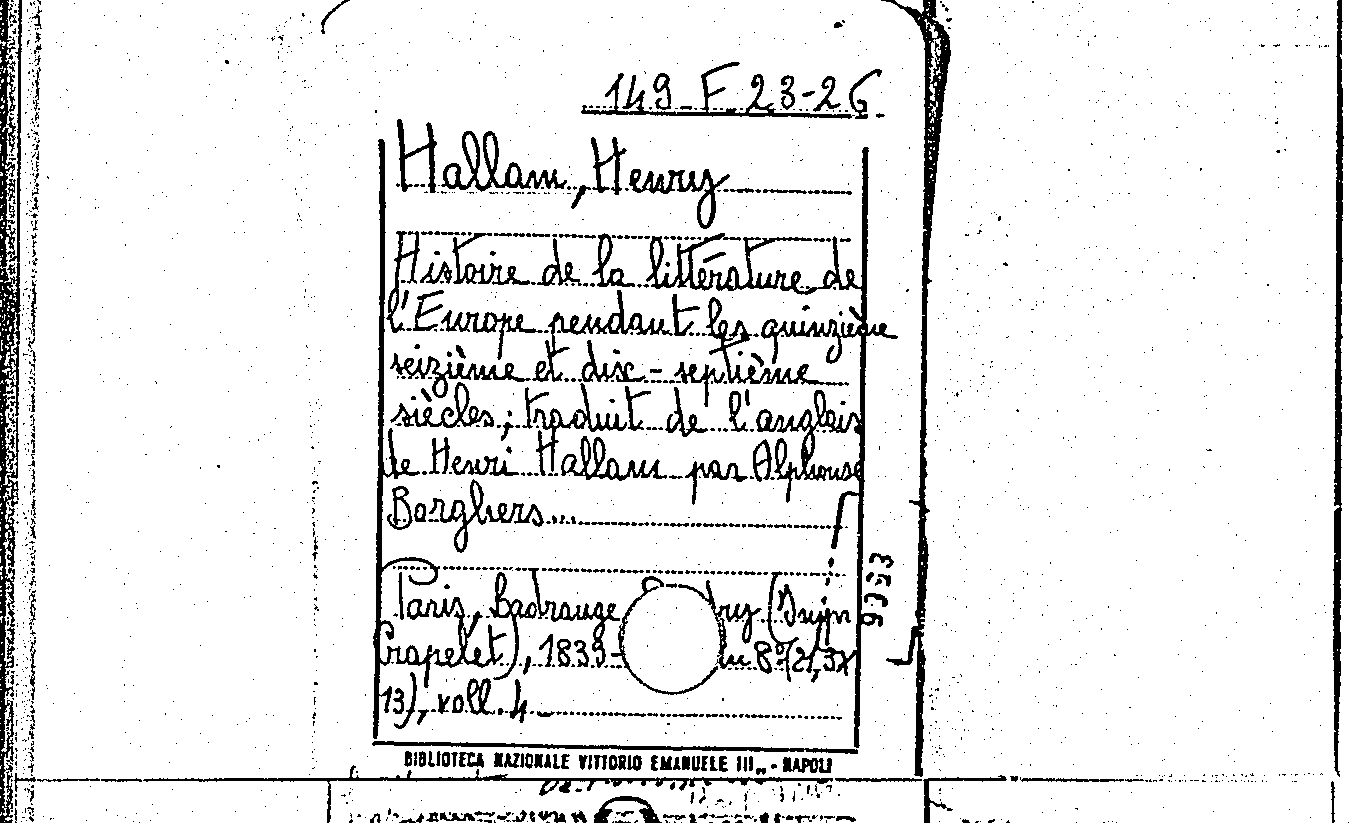 149 F 23-26
Hallam, Henry
Histoire de la littérature de
l'Europe pendant les quinzième
seizième et disc-septième
siècles; traduit de l'anglais
de Henri Hallam par Alphonse
Borghers...
Paris, Ladrange (Impr
Crapelet), 1839- in 8° (21,3x
13), voll. 4
BIBLIOTECA NAZIONALE VITTORIO EMANUELE III„ - NAPOLI